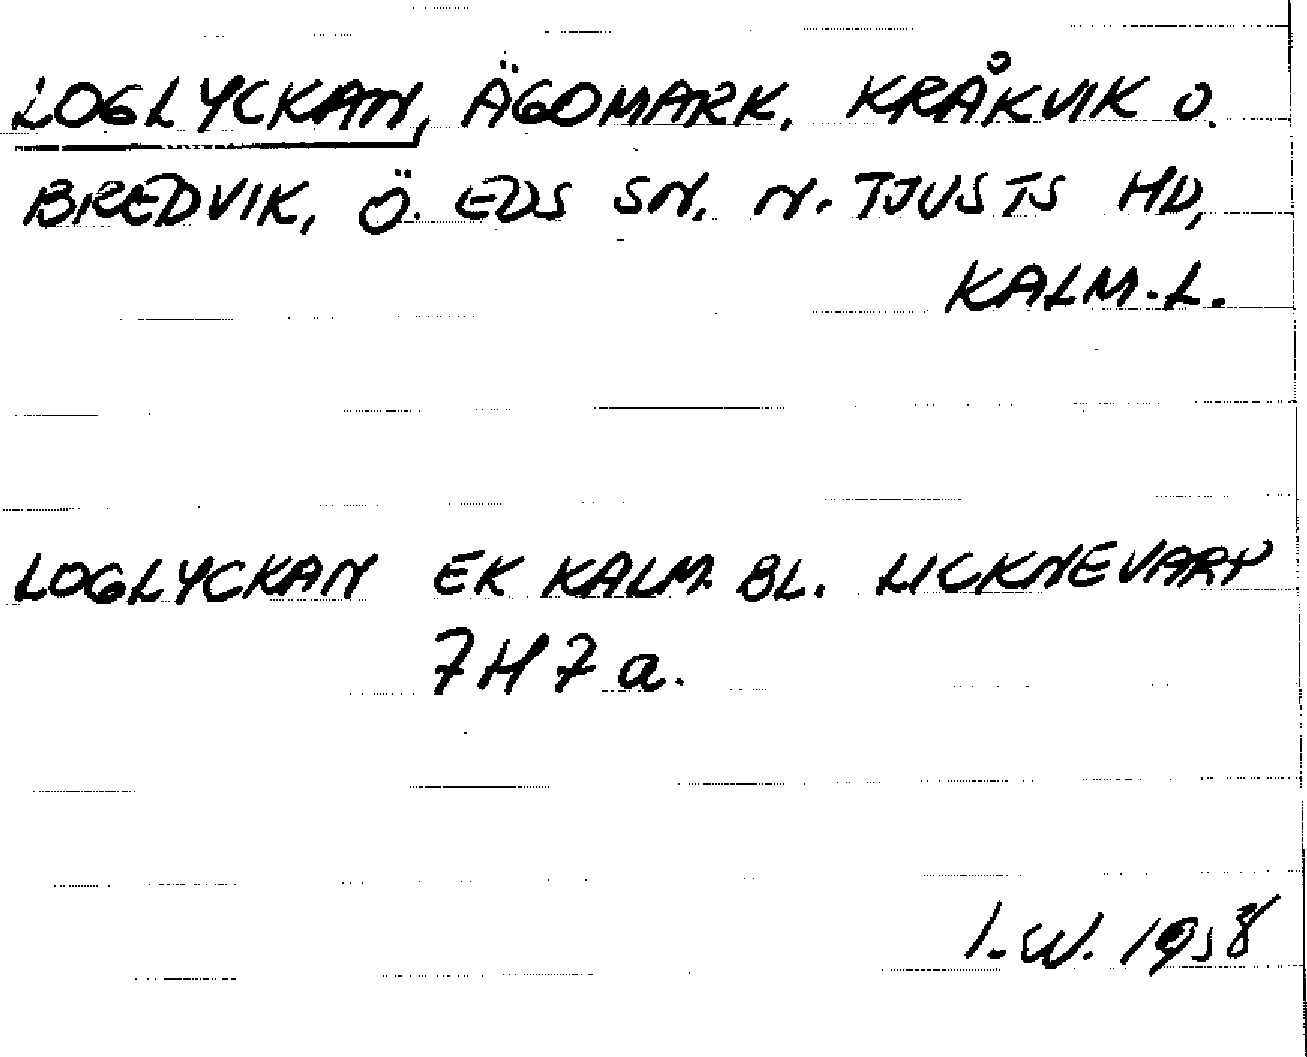 LOGLYCKAN, ÄGOMARK, KRÅKVIK O.
BREDVIK, Ö. EDS SN. N. TJUSTS HD,
KALM. L.
LOGLYCKAN EK KALM. BL. LICKNEVARP
7H7a.
I.W. 1958